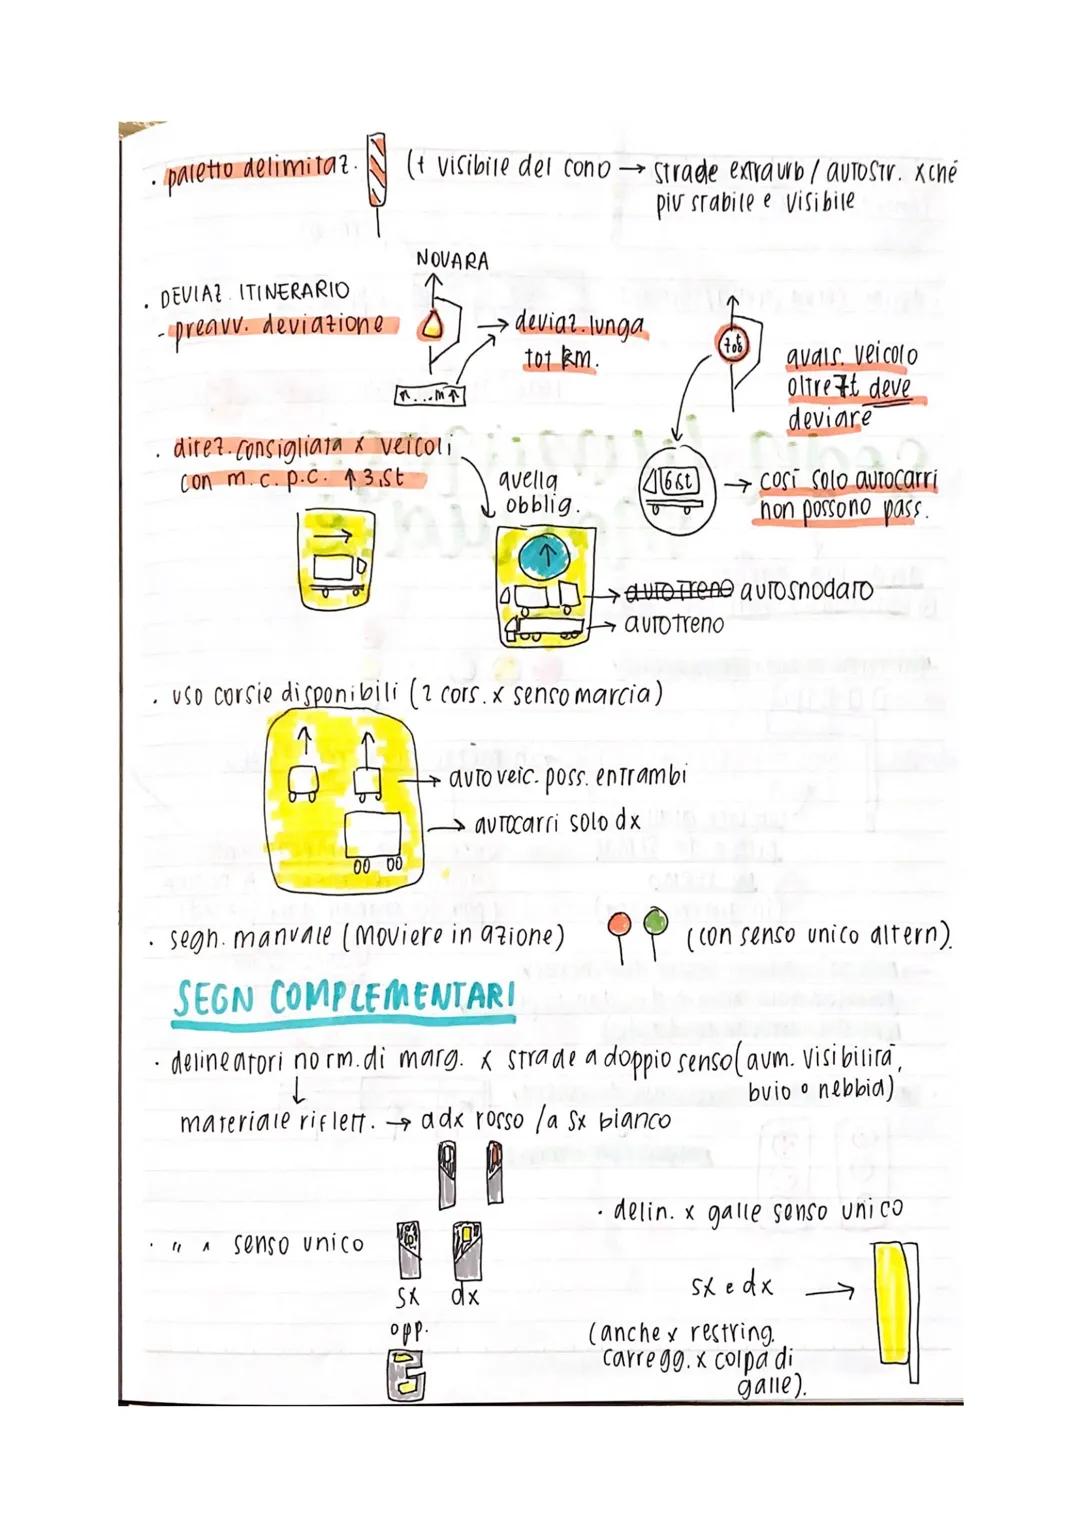 . paletto delimitaz. (+ visibile del cono → strade extraurb / autostr. xché
più stabile e visibile
NOVARA
. DEVIAZ. ITINERARIO
- preavv. deviazione
→ deviaz. lunga
tot km.
...m
quals. veicolo
oltre 7t deve
deviare
. direz. consigliata x veicoli
con m.c.p.c. ↑ 3,5t
quella
obblig.
6,5t
→ così solo autocarri
non possono pass.
→ autotreno autosnodato
→ autotreno
. uso corsie disponibili (2 cors. x senso marcia)
→ autoveic. poss. entrambi
→ autocarri solo dx
. segn. manuale (moviere in azione)
(con senso unico altern).
SEGN COMPLEMENTARI
. delineatori norm. di marg. x strade a doppio senso (aum. visibilità,
buio o nebbia)
↓
materiale riflett. → a dx rosso / a sx bianco
. delin. x galle senso unico
. " " senso unico
sx dx
opp.
sx e dx →
(anche x restring.
carregg. x colpa di
galle).